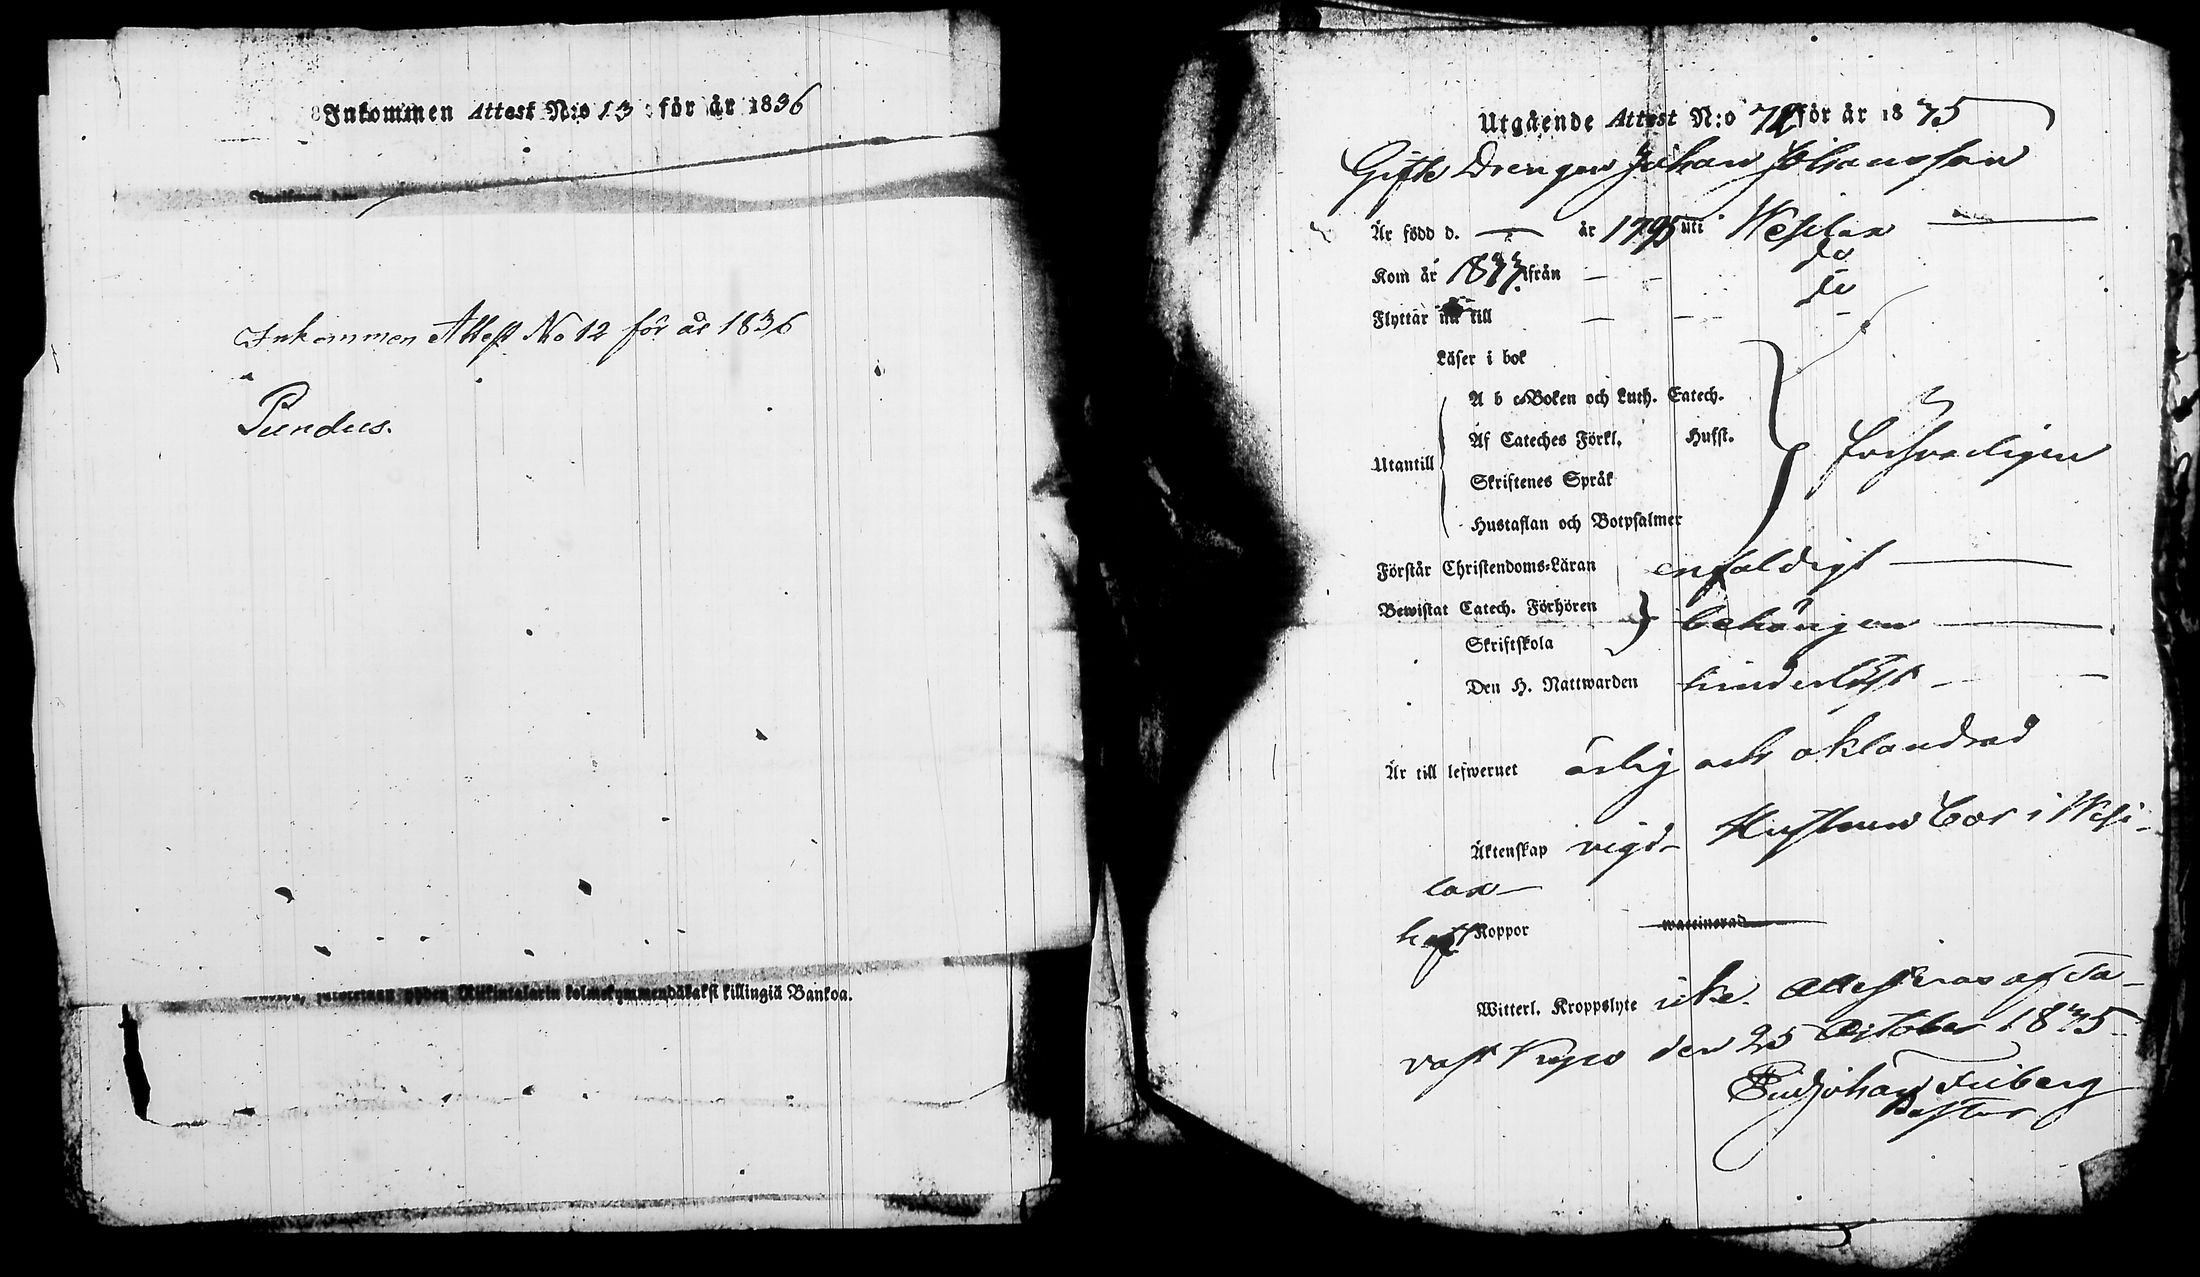 Inkommen Attest N:o 13 för år 1836
Inkommen Attest No 12 för år 1836
Pundus.
killingiä Bankoa.
Utgående Attest N:o 72 för år 1835
Gifte Drengen Johan Johansson
Är född d. — år 1795 uti Wesilax
Kom år 1833 ifrån — — do
Flyttar nu till — — do
Läser i bok
A b c-Boken och Luth. Catech.
Af Cateches Förkl. Husst.
Utantill
Skriftenes Språk
försvarligen
Hustaflan och Botpsalmer
Förstår Christendoms-Läran enfaldigt
Bewistat Catech. Förhören
behörigen
Skriftskola
Den H. Nattwarden hinderlöst
Är till lefwernet ärlig och oklandrad
Äktenskap vigd. Hustrun bor i Wesi-
lax
haft Koppor waccinerad
Witterl. Kroppslyte icke. Attesteras af Ta-
vast Kyro den 25 October 1835.
Johan Friberg
Pastor